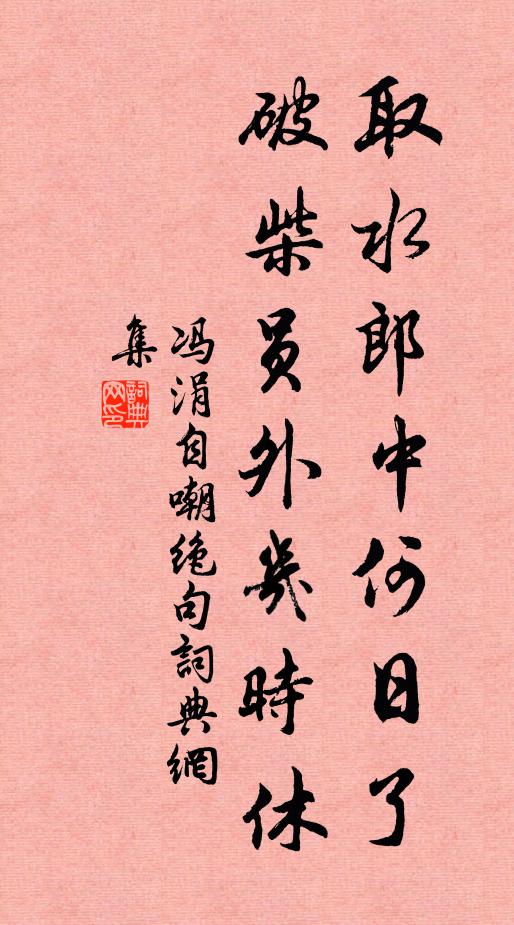 取水郎中何日了
破柴员外几時休
冯涓自嘲绝句詞典網
集
詞典網印